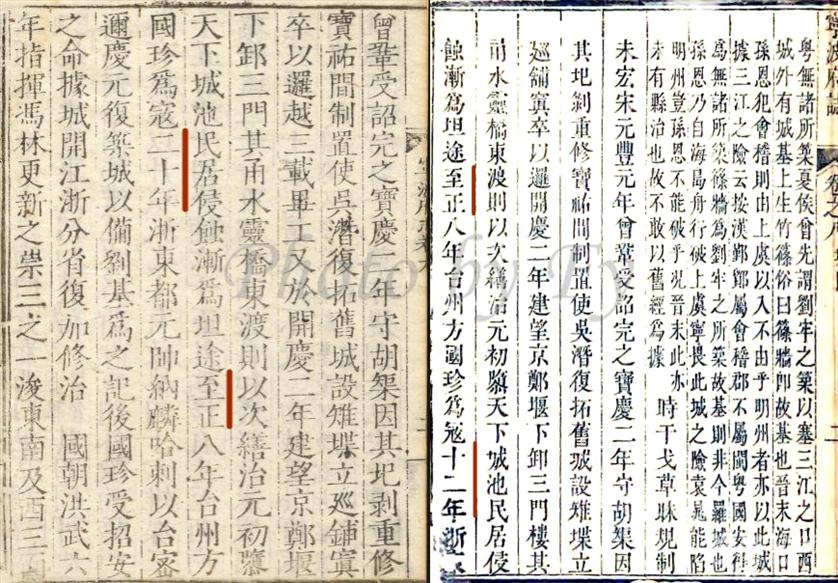 寧波府志
粵無諸所築夏侯曾先謂劉牢之築以塞三江之口西
城外有城基上生竹篠俗曰篠牆卽故基也晉末海口
孫恩犯會稽則由上虞以入不由乎明州者亦以此城
據三江之險云按漢鄞鄮屬會稽郡不屬閩粵國安得
爲無諸所築篠牆爲劉牢之所築故基則非今羅城也
孫恩乃自海島舟行破上虞寧畏此城之險袁晁能陷
明州豈孫恩不能破乎況晉末此亦
未有縣治也故不敢以舊經爲據
時干戈草昧規制
未宏宋元豐元年曾鞏受詔完之寶慶二年守胡榘因
其圯剝重修寶祐間制置使吳潛復拓舊城設雉堞立
廵鋪窴卒以邏開慶二年建望京鄭堰下卸三門樓其
甬水靈橋東渡則以次繕治元初隳天下城池民居侵
蝕漸爲坦途至正八年台州方國珍爲寇十二年浙
曾鞏受詔完之寶慶二年守胡榘因其圯剥重修
寶祐間制置使吳潛復拓舊城設雉堞立廵鋪窴
卒以邏越三載畢工又於開慶二年建望京鄭堰
下卸三門其甬水靈橋東渡則以次繕治元初隳
天下城池民居侵蝕漸爲坦途至正八年台州方
國珍爲寇二十年浙東都元帥納麟哈剌以台密
邇慶元復築城以備劉基爲之記後國珍受招安
之命據城開江浙分省復加修治 國朝洪武六
年指揮馮林更新之崇三之一浚東南及西三
Photo by Fy